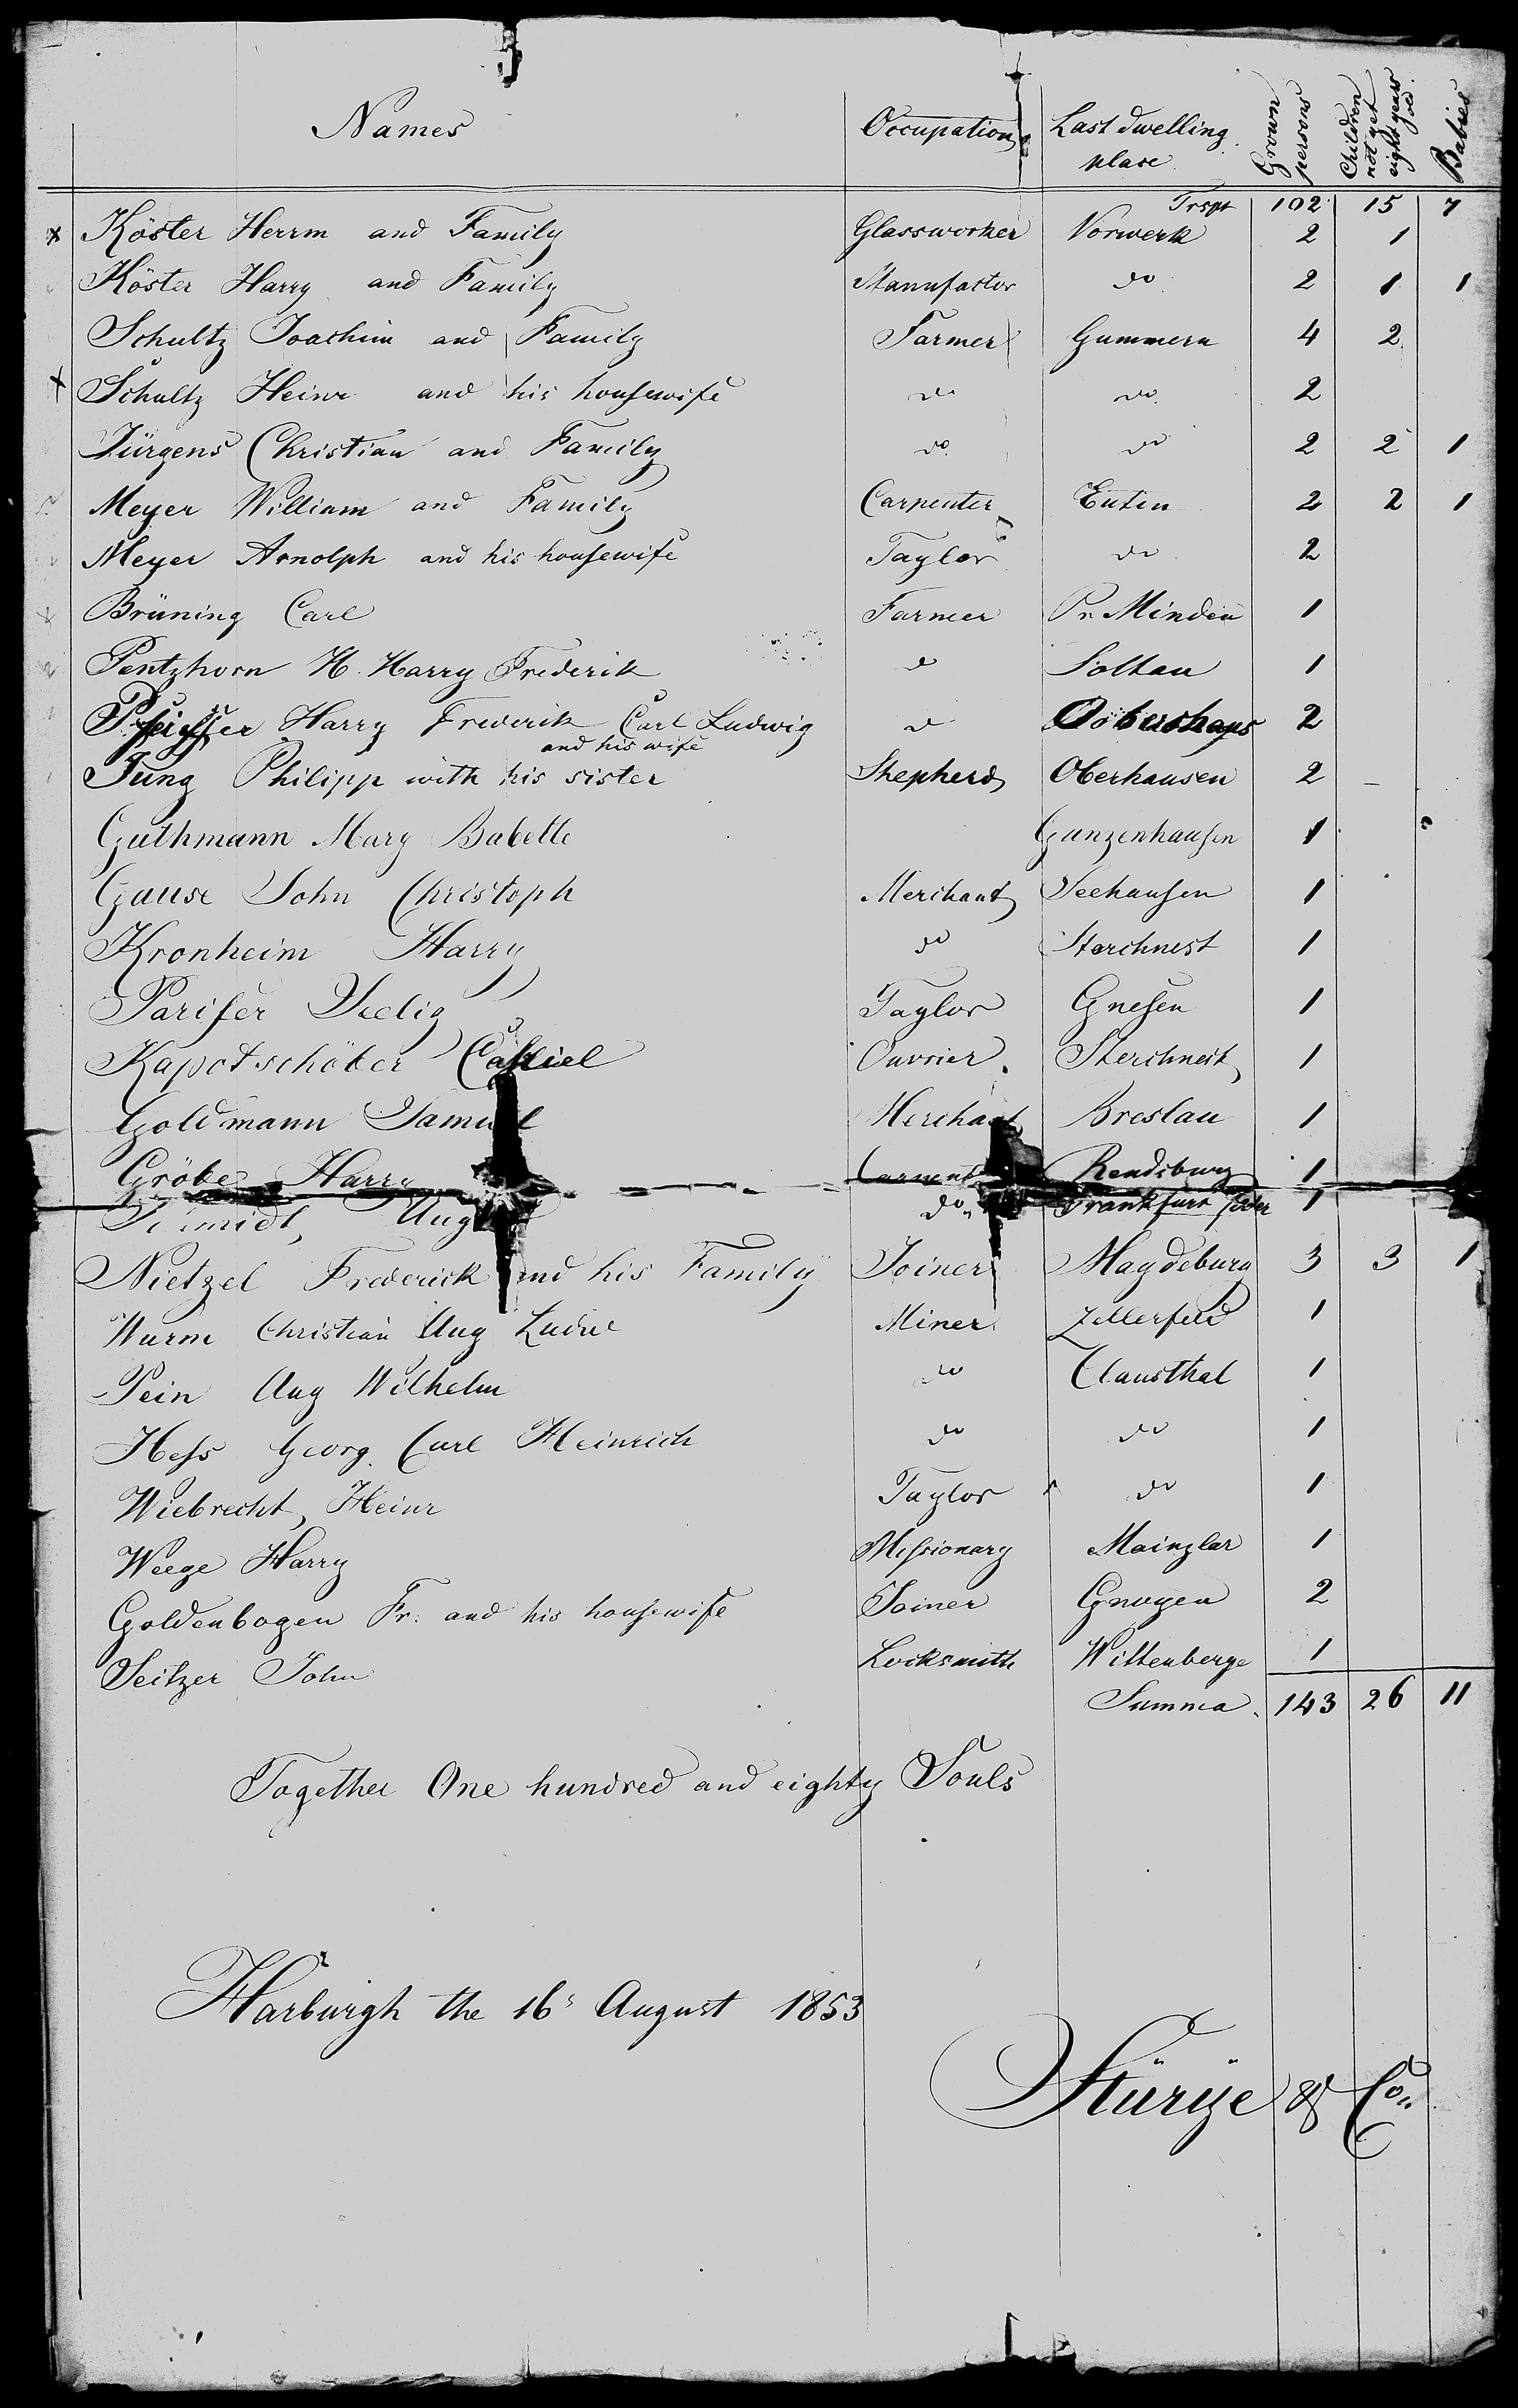 Names Occupation Last dwelling place Grown persons Children not yet eight years old. Babies
Trspt 102 15 7
x Köster Herrm and Family Glassworker Vorwerk 2 1
Köster Harry and Family Manufactor do 2 1 1
Schultz Joachim and Family Farmer Gummern 4 2
x Schultz Heinr and his housewife do do 2
Jürgens Christian and Family do do 2 2 1
Meyer William and Family Carpenter Eutin 2 2 1
Meyer Arnolph and his housewife Taylor do 2
Brüning Carl Farmer Pr. Minden 1
Pentzhorn H. Harry Frederik do Soltau 1
Pfeiffer Harry Frederik Carl Ludwig do 2
and his wife
Jung Philipp with his sister Shepherd Oberhausen 2 –
Guthmann Mary Babette Gunzenhausen 1
Gause John Christoph Merchant Seehausen 1
Kronheim Harry do Storchnest 1
Pariser Seelig Taylor Gnesen 1
Kapotschöber Ouvrier. Sterchnest 1
Goldmann Samuel Merchant Breslau 1
Gröbe Harry Carpent Rendsburg 1
Schmidt, Aug do Frankfurt 1
Nietzel Frederick and his Family Joiner Magdeburg 3 3 1
Wurm Christian Aug Ludw Miner Zellerfeld 1
Pein Aug Wilhelm do Clausthal 1
Hess Georg. Carl Heinrich do do 1
Wiebrecht, Heinr Taylor do 1
Weege Harry Missionary Mainzlar 1
Goldenbogen Fr. and his housewife Joiner Gnoyen 2
Seitzer John Locksmith Wittenberge 1
Summa. 143 26 11
Together One hundred and eighty Souls
Harburgh the 16s August 1853
Stürije & Co.